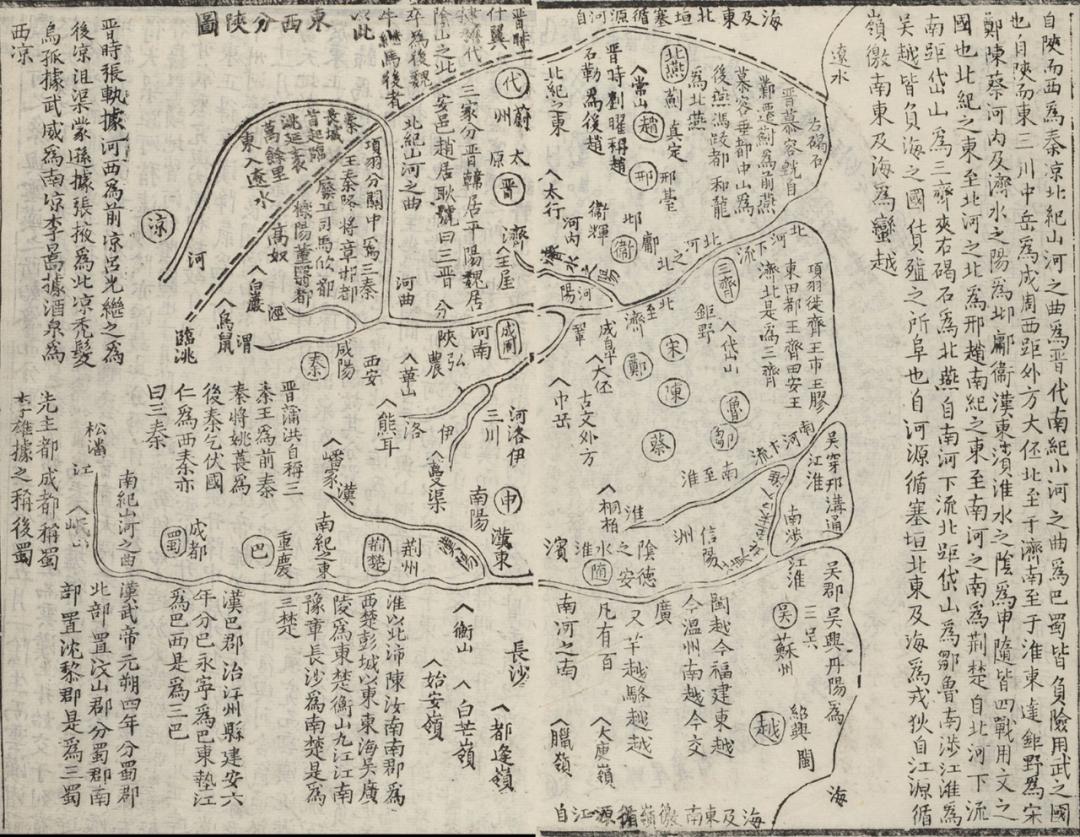 自陝而西為秦凉北紀山河之曲為晉代南紀小河之曲為巴蜀皆負險用武之國
也自陝而東三川中岳為成周西距外方大伾北至于濟南至于淮東達鉅野為宋
鄭陳蔡河内及濟水之陽為邶鄘衛漢東濱淮水之陰為申隨皆四戰用文之
國也北紀之東至北河之北為邢趙南紀之東至南河之南為荆楚自北河下流
南距岱山為三齊夾右碣石為北燕自南河下流北距岱山為鄒魯南涉江淮為
吳越皆負海之國貨殖之所阜也自河源循塞垣北東及海為戎狄自江源循
嶺徼南東及海為蠻越
海及東北垣塞循源河自
遼水
右碣石
晉慕容皝自
鄴遷薊為前燕
慕容垂都中山為
後燕馮跋都和龍
為北燕
北燕
薊
真定
常山
趙
邢
邢臺
晉時劉曜稱趙
石勒為後趙
北紀之東
太行
河内
衛輝
邶
鄘
衛
北河之北
北河下流
項羽徙齊王市王膠
東田都王齊田安王
濟北是為三齊
三齊
鉅野
岱山
北至濟
宋
鄭
陳
蔡
魯
鄒
成臯
大伾
鞏
中岳
古文外方
南河下流
南至淮
吳穿邗溝通
江淮
南涉
江淮
桐栢
淮
信陽
州
德安
隨
淮水之陰
濱
吳郡吳興丹陽為
三吳
吳
蘇州
越
紹興
閩
海
閩越今福建東越
今溫州南越今交
廣
又有羊越駱越越
凡有百
南河之南
大庾嶺
臘嶺
海及東南徼嶺循源江自
東西分陜圖
代
蔚
州
太
原
晉
濟
王屋
三家分晉韓居平陽魏居
安邑趙居耿號曰三晉
北紀山河之曲
項羽分關中為三秦
王秦略將章邯都
廢丘司馬欣都
櫟陽董翳都
高奴
秦
長城
首起臨
洮延袤
萬餘里
東入遼水
晉時張軌據河西為前凉呂光繼之為
後凉沮渠蒙遜據張掖為北凉禿髮
烏孤據武威為南凉李暠據酒泉為
西凉
凉
河
臨洮
鳥鼠
渭
白巖
涇
秦
咸陽
西安
河曲
分
陜
弘
農
河南
成周
華山
熊耳
洛
伊
三川
河洛伊
蔓渠
申
南陽
漢東
晉蒲洪自稱三
秦王為前秦
秦將姚萇為
後秦乞伏國
仁為西秦亦
曰三秦
嶓冢
漢
南紀之東
荆楚
荆州
先主都成都稱蜀
李雄據之稱後蜀
松潘
江
岷山
南紀山河之曲
蜀
成都
巴
重慶
漢武帝元朔四年分蜀郡
北部置汶山郡分蜀郡南
部置沈黎郡是為三蜀
漢巴郡治江州縣建安六
年分巴永寧為巴東墊江
為巴西是為三巴
淮以北沛陳汝南南郡為
西楚彭城以東東海吳廣
陵為東楚衡山九江江南
豫章長沙為南楚是為
三楚
長沙
衡山
始安嶺
白芒嶺
都逢嶺